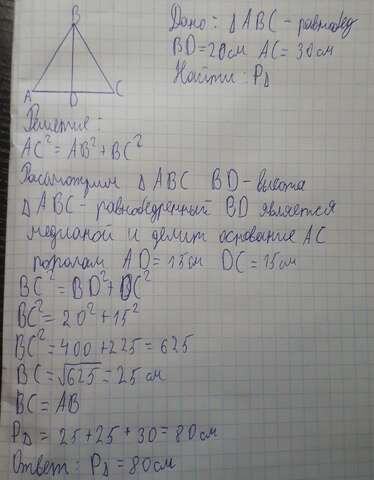 B
A
D
C
Дано: Δ ABC - равнобед
BD = 20 см AC = 30 см
Найти: PΔ
Решение:
AC² = AB² + BC²
Рассмотрим Δ ABC BD - высота
Δ ABC - равнобедренный BD является
медианой и делит основание AC
пополам AD = 15 см DC = 15 см
BC² = BD² + DC²
BC² = 20² + 15²
BC² = 400 + 225 = 625
BC = √625 = 25 см
BC = AB
PΔ = 25 + 25 + 30 = 80 см
Ответ: PΔ = 80 см